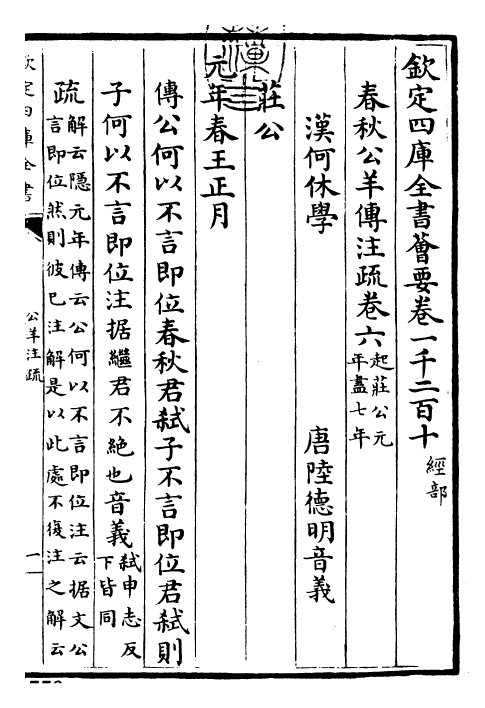 欽定四庫全書薈要卷一千二百十 經部
春秋公羊傳注疏卷六 起莊公元年盡七年
漢何休學 唐陸德明音義
莊公
元年春王正月
傳公何以不言即位春秋君弒子不言即位君弒則
子何以不言即位注据繼君不絶也音義 弒申志反下皆同
疏 解云隠元年傳云公何以不言即位注云据文公
言即位然則彼已注解是以此處不復注之解云
欽定四庫全書
公羊注疏
一